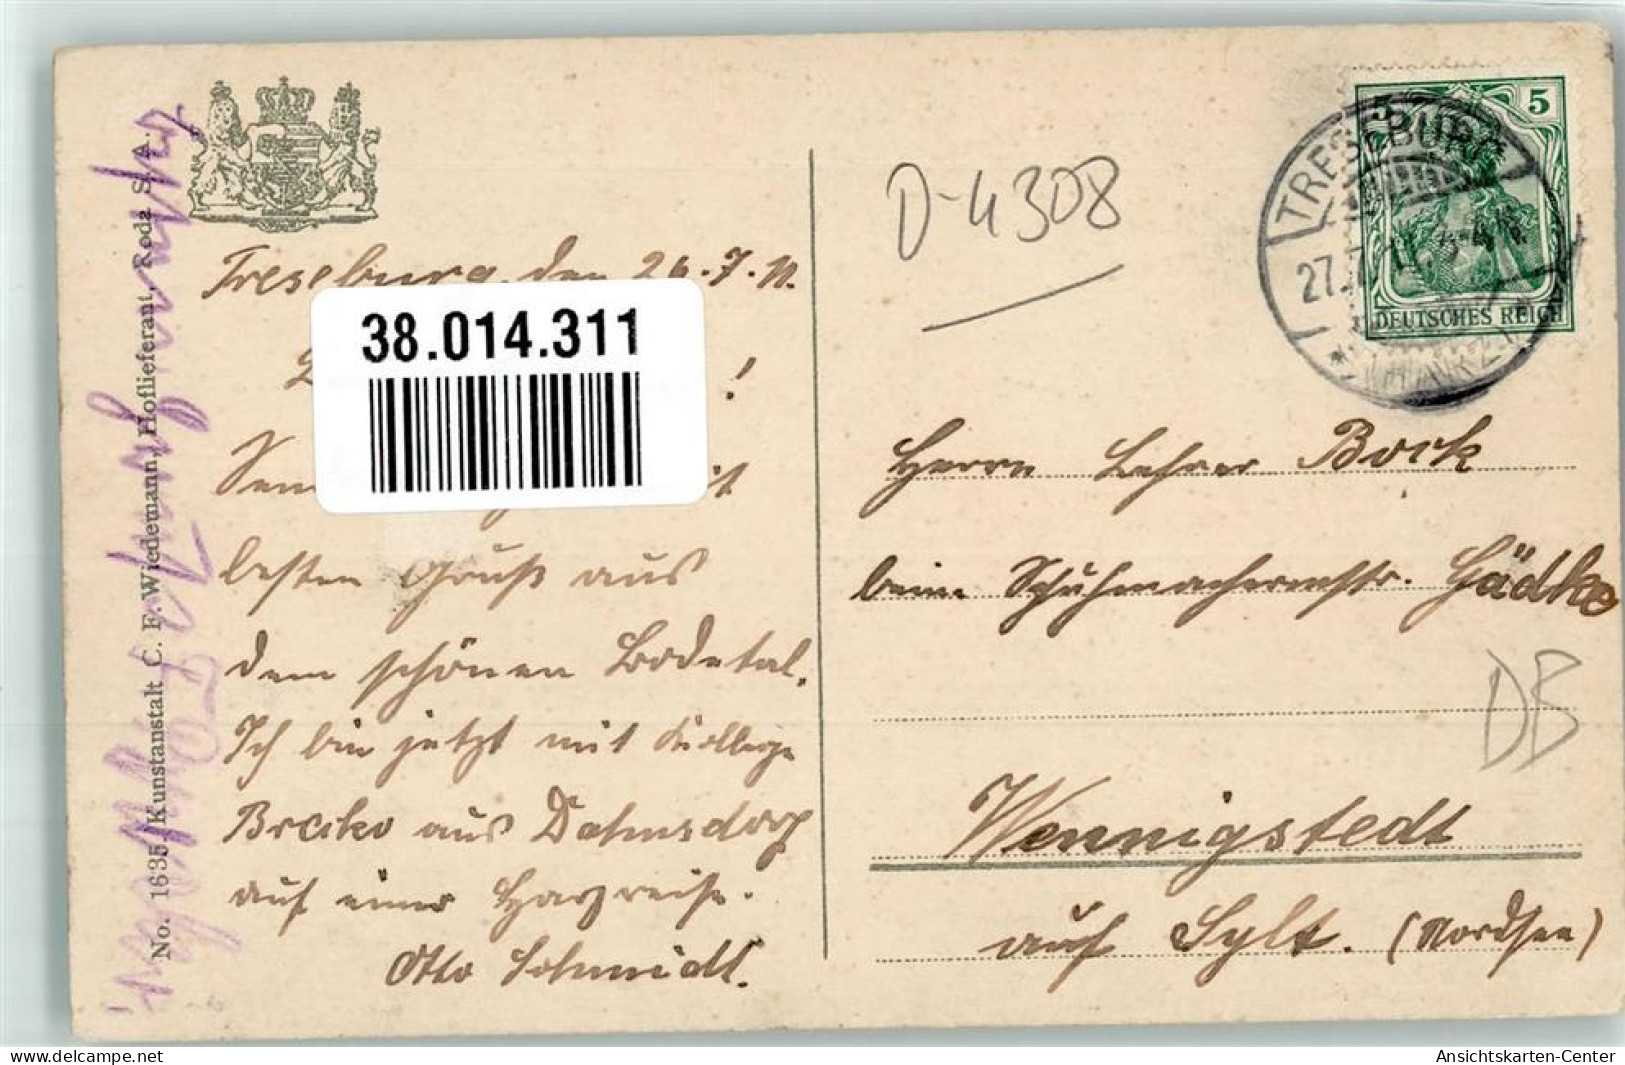 No. 1635, Kunstanstalt C. F. Wiedemann, Hoflieferant, Roda S. A.
Treseburg, den 26.7.11.
38.014.311
!
besten Gruß aus
dem schönen Bodetal.
Ich bin jetzt mit Kollege
aus Dahnsdorf
auf einer Harzreise.
Otto Schmidt.
D-4308
5 5
DEUTSCHES REICH
TRESEBURG
27.7.
* (HARZ) *
Herrn Lehrer Bock
beim Schuhmachermstr. Gädke
DB
Wennigstedt
auf Sylt. (Nordsee)
www.delcampe.net
Ansichtskarten-Center